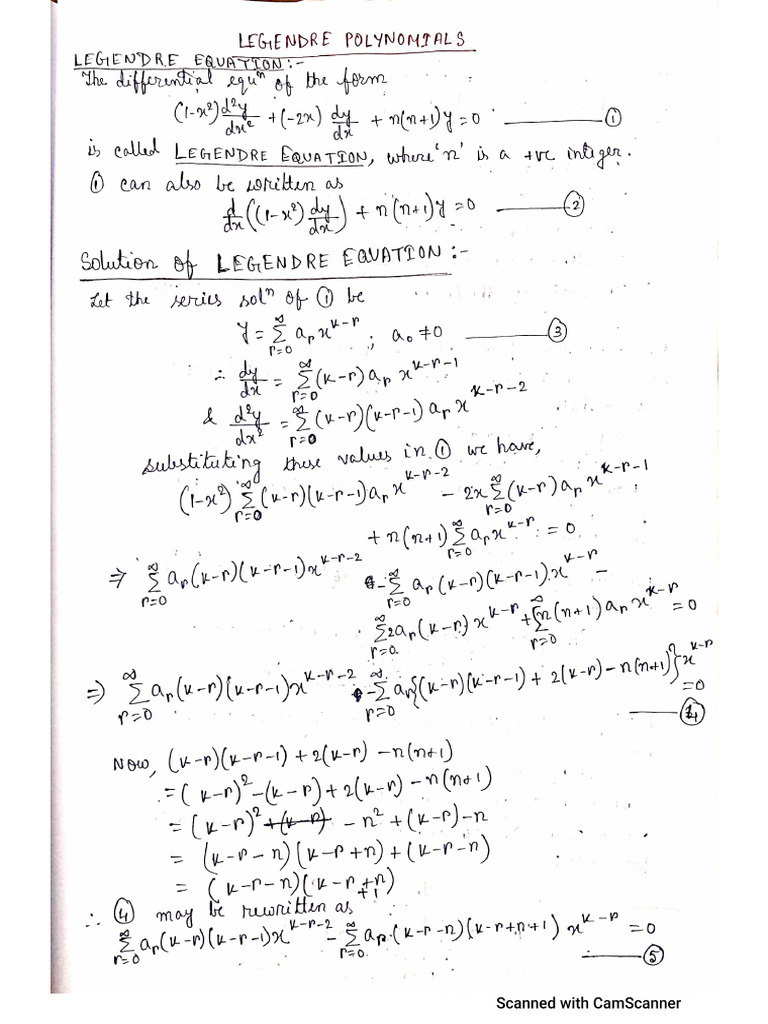 LEGENDRE POLYNOMIALS
LEGENDRE EQUATION:-
The differential equⁿ of the form
(1-x²) d²y/dx² + (-2x) dy/dx + n(n+1)y = 0 ——— ①
is called LEGENDRE EQUATION, where 'n' is a +ve integer.
① can also be written as
d/dx((1-x²) dy/dx) + n(n+1)y = 0 ——— ②
Solution of LEGENDRE EQUATION :-
Let the series solⁿ of ① be
y = ∞Σr=0 aᵣ x^(k-r) ; a₀ ≠ 0 ——— ③
∴ dy/dx = ∞Σr=0 (k-r) aᵣ x^(k-r-1)
& d²y/dx² = ∞Σr=0 (k-r)(k-r-1) aᵣ x^(k-r-2)
substituting these values in ① we have,
(1-x²) ∞Σr=0 (k-r)(k-r-1) aᵣ x^(k-r-2) - 2x ∞Σr=0 (k-r) aᵣ x^(k-r-1)
+ n(n+1) ∞Σr=0 aᵣ x^(k-r) = 0
⇒ ∞Σr=0 aᵣ (k-r)(k-r-1) x^(k-r-2) - ∞Σr=0 aᵣ (k-r)(k-r-1) x^(k-r) -
∞Σr=0 2aᵣ (k-r) x^(k-r) + ∞Σr=0 n(n+1) aᵣ x^(k-r) = 0
⇒ ∞Σr=0 aᵣ (k-r)(k-r-1) x^(k-r-2) - ∞Σr=0 aᵣ {(k-r)(k-r-1) + 2(k-r) - n(n+1)} x^(k-r) = 0
——— ④
Now, (k-r)(k-r-1) + 2(k-r) - n(n+1)
= (k-r)² - (k-r) + 2(k-r) - n(n+1)
= (k-r)² +(k-r) - n² + (k-r) - n
= (k-r-n)(k-r+n) + (k-r-n)
= (k-r-n)(k-r+n+1)
∴ ④ may be rewritten as
∞Σr=0 aᵣ (k-r)(k-r-1) x^(k-r-2) - ∞Σr=0 aᵣ (k-r-n)(k-r+n+1) x^(k-r) = 0
——— ⑤
Scanned with CamScanner